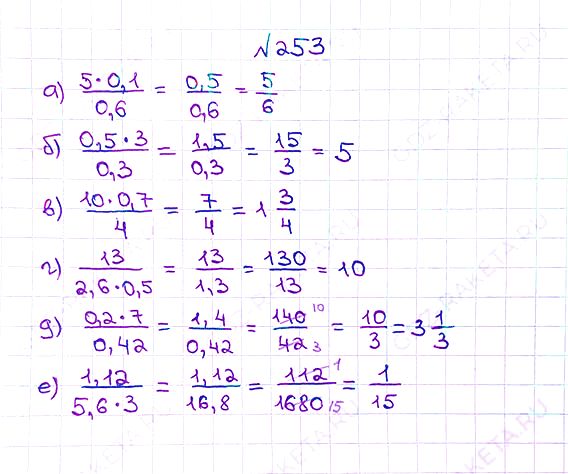 №253
а) 5·0,1/0,6 = 0,5/0,6 = 5/6
б) 0,5·3/0,3 = 1,5/0,3 = 15/3 = 5
в) 10·0,7/4 = 7/4 = 1 3/4
г) 13/2,6·0,5 = 13/1,3 = 130/13 = 10
д) 0,2·7/0,42 = 1,4/0,42 = 140 10/42 3 = 10/3 = 3 1/3
е) 1,12/5,6·3 = 1,12/16,8 = 112 1/1680 15 = 1/15